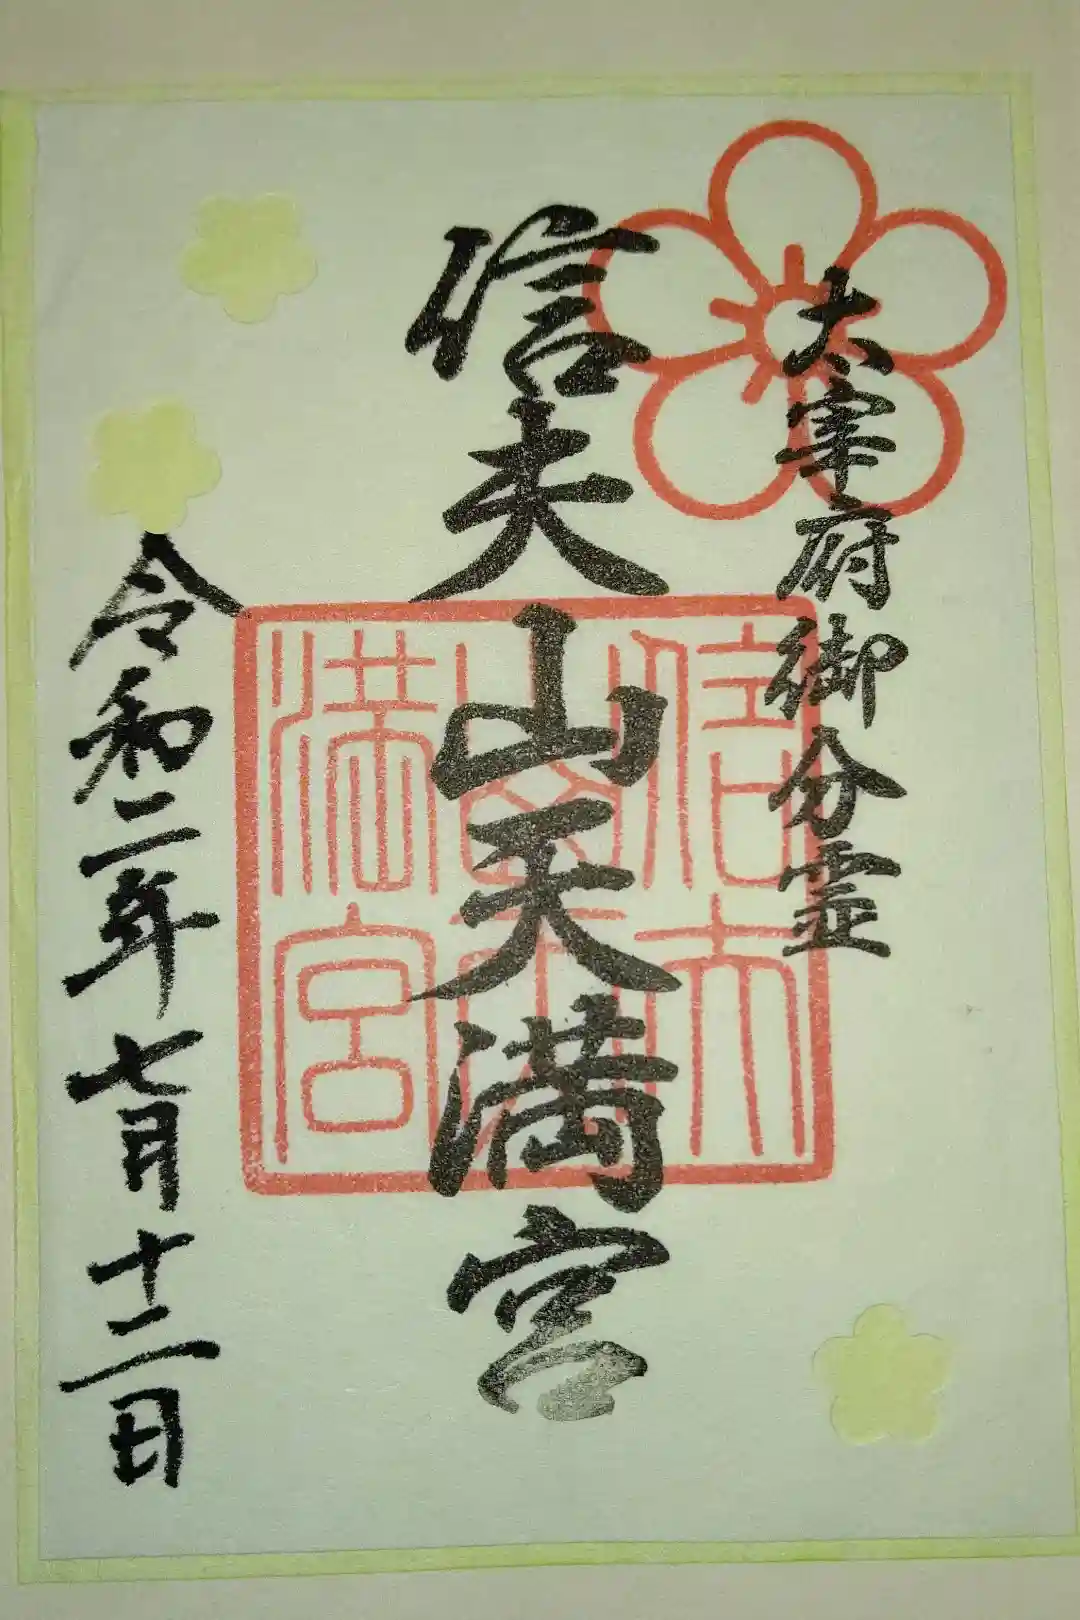 太宰府御分霊
信夫山天満宮
信夫山天満宮
令和二年七月十二日